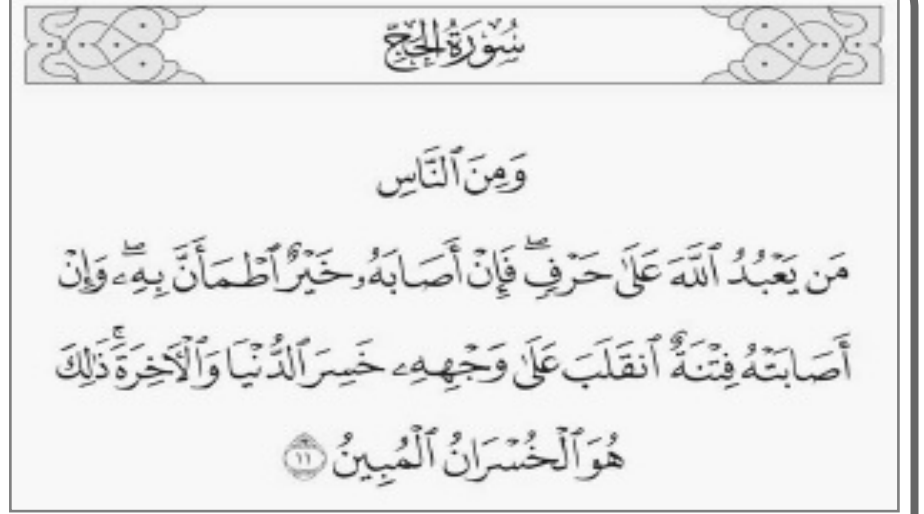 سُورَةُ الحَجِّ
وَمِنَ ٱلنَّاسِ
مَن يَعۡبُدُ ٱللَّهَ عَلَىٰ حَرۡفٖۖ فَإِنۡ أَصَابَهُۥ خَيۡرٌ ٱطۡمَأَنَّ بِهِۦۖ وَإِنۡ
أَصَابَتۡهُ فِتۡنَةٌ ٱنقَلَبَ عَلَىٰ وَجۡهِهِۦ خَسِرَ ٱلدُّنۡيَا وَٱلۡأٓخِرَةَۚ ذَٰلِكَ
هُوَ ٱلۡخُسۡرَانُ ٱلۡمُبِينُ ١١